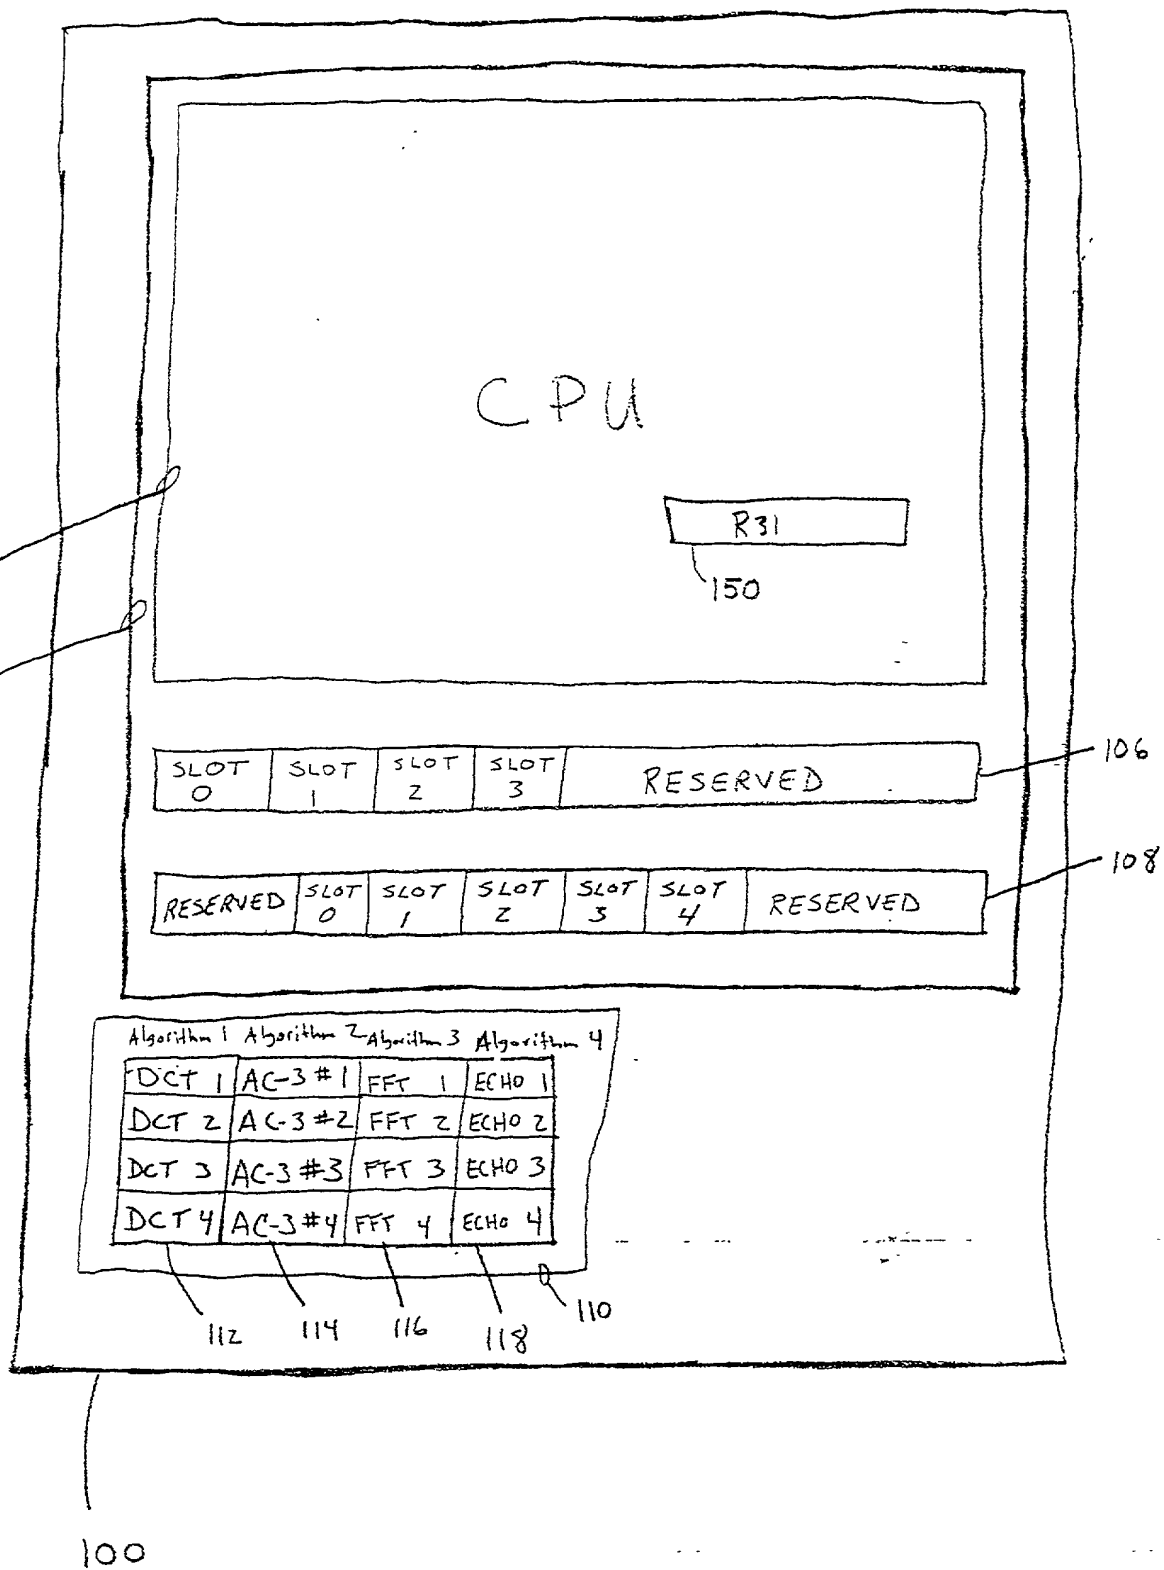 CPU
R31
150
SLOT 0 SLOT 1 SLOT 2 SLOT 3 RESERVED
106
RESERVED SLOT 0 SLOT 1 SLOT 2 SLOT 3 SLOT 4 RESERVED
108
Algorithm 1 Algorithm 2 Algorithm 3 Algorithm 4
DCT 1 AC-3 #1 FFT 1 ECHO 1
DCT 2 AC-3 #2 FFT 2 ECHO 2
DCT 3 AC-3 #3 FFT 3 ECHO 3
DCT 4 AC-3 #4 FFT 4 ECHO 4
112 114 116 118 110
100